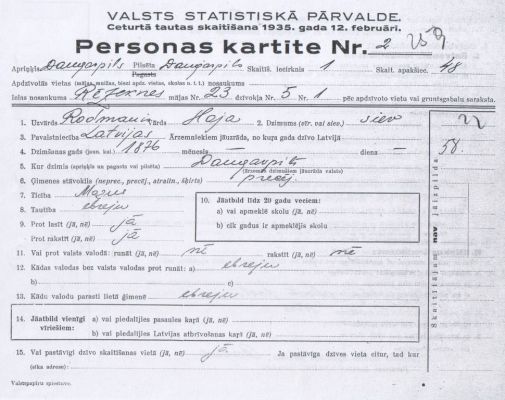 VALSTS STATISTISKĀ PĀRVALDE.
Ceturtā tautas skaitīšana 1935. gada 12. februārī.
Personas kartite Nr. 2
Apriņķis Daugavpils Pilsēta Pagasts Daugavpils Skaitīš. iecirknis 1 Skait. apakšiec. 48
Apdzīvotās vietas (mājas, muižas, bieži apdz. vietas, skolas u. t. t.) nosaukums
Ielas nosaukums Rēzeknes mājas Nr. 23 dzīvokļa Nr. 5 Nr. 1 pēc apdzīvoto vietu vai gruntsgabalu saraksta.
1. Uzvārds Rodmann vārds Haja 2. Dzimums (vīr. vai siev.) siev
3. Pavalstniecība Latvijas Ārzemniekiem jāuzrāda, no kura gada dzīvo Latvijā
4. Dzimšanas gads (jaun. kal.) 1876 mēnesis — diena — 58.
5. Kur dzimis (apriņķis un pagasts vai pilsēta) Daugavpils
(Ārzemēs dzimušiem jāuzrāda valsts)
6. Ģimenes stāvoklis (neprec., precēj., atraitn., šķirts) precēj.
7. Ticība Mozus
8. Tautība ebreju
9. Prot lasīt (jā, nē) jā
Prot rakstīt (jā, nē) jā
10. Jāatbild līdz 20 gadu veciem:
a) vai apmeklē skolu (jā, nē)
b) cik gadus ir apmeklējis skolu
11. Vai prot valsts valodā: runāt (jā, nē) nē rakstīt (jā, nē) nē
12. Kādas valodas bez valsts valodas prot runāt: a) ebreju
b) c)
13. Kādu valodu parasti lietā ģimenē ebreju
14. Jāatbild vienīgi vīriešiem: a) vai piedalījies pasaules karā (jā, nē)
b) vai piedalījies Latvijas atbrīvošanas karā (jā, nē)
15. Vai pastāvīgi dzīvo skaitīšanas vietā (jā, nē) jā Ja pastāvīga dzīves vieta citur, tad kur
(sīka adrese):
Valstspapīru spiestuve.
Skaitītājam nav jāizpilda